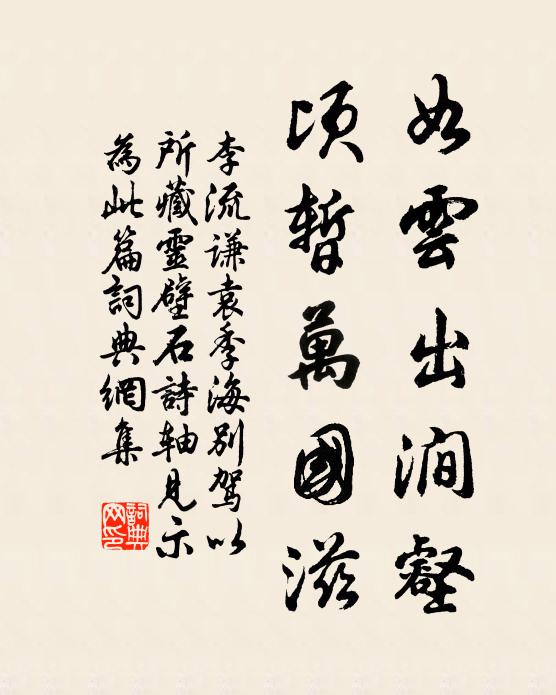 如雲出澗壑
頃暫萬國滋
李流謙袁季海別駕以
所藏靈壁石詩軸見示
為此篇詞典網集
詞典
网印